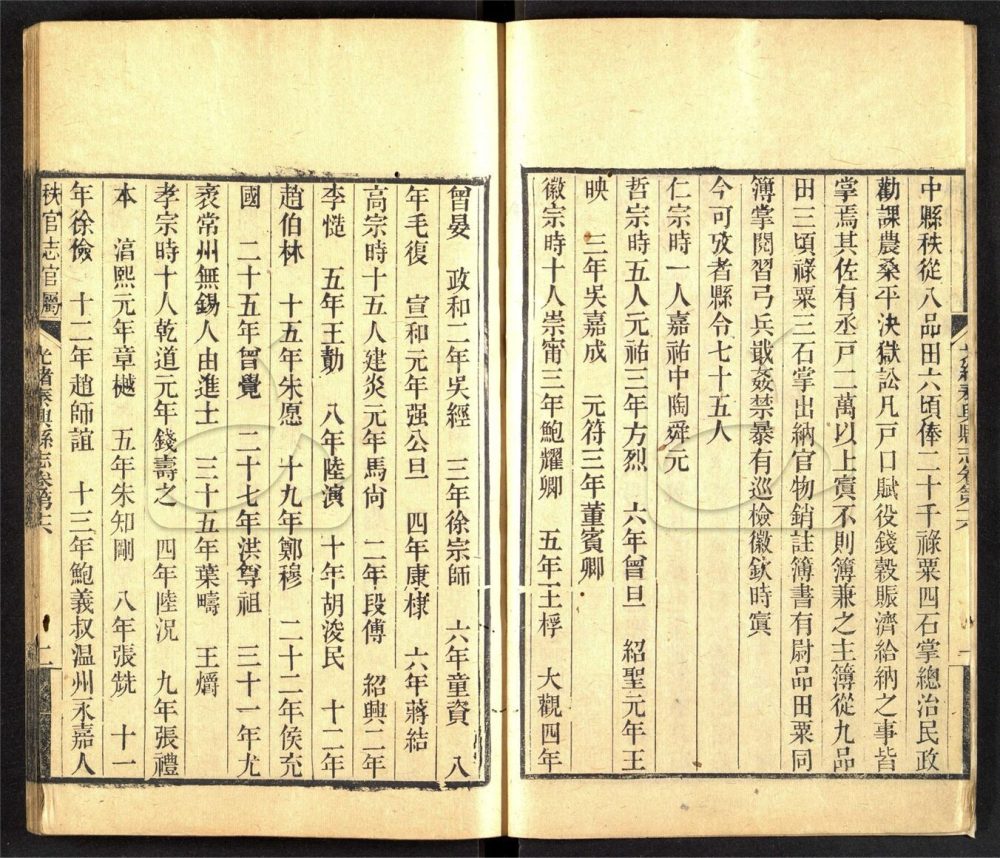 中縣秩從八品田六頃俸二十千祿粟四石掌總治民政
勸課農桑平決獄訟凡戸口賦役錢穀賑濟給納之事皆
掌焉其佐有丞戸二萬以上寘不則簿兼之主簿從九品
田三頃祿粟三石掌出納官物銷註簿書有尉品田粟同
簿掌閱習弓兵戢姦禁暴有巡檢徽欽時寘
今可攷者縣令七十五人
仁宗時一人嘉祐中陶舜元
哲宗時五人元祐三年方烈 六年曾旦 紹聖元年王
映 三年吳嘉成 元符三年董賓卿
徽宗時十人崇甯三年鮑耀卿 五年王桴 大觀四年
曾晏 政和二年吳經 三年徐宗師 六年童資 八
年毛復 宣和元年强公旦 四年康棣 六年蔣結
高宗時十五人建炎元年馬尙 二年段傅 紹興二年
李慥 五年王勳 八年陸演 十年胡淩民 十二年
趙伯林 十五年朱愿 十九年鄭穆 二十二年侯充
國 二十五年曾覺 二十七年洪尊祖 三十一年尤
袤常州無錫人由進士 三十五年葉疇 王爝
孝宗時十人乾道元年錢壽之 四年陸況 九年張禮
本 淳熙元年章樾 五年朱知剛 八年張兟 十一
年徐儉 十二年趙師誼 十三年鮑義叔温州永嘉人
秩官志官屬 光緒泰興縣志卷第六 二